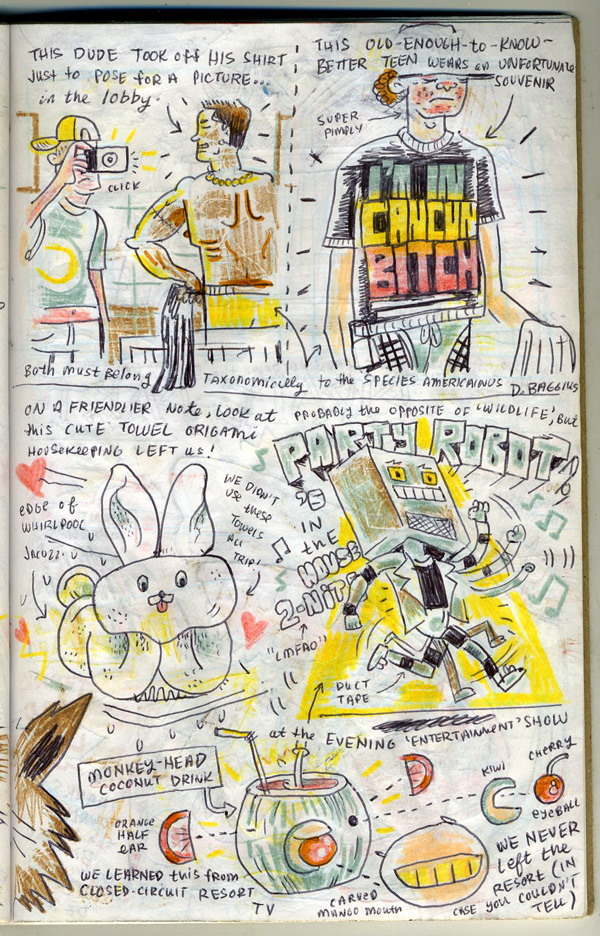 THIS DUDE TOOK off HIS SHIRT
Just to POSE foR A PICTURE...
in the lobby.
CLICK
THIS OLD-ENOUGH-to-KNOW-
BETTER TEEN WEARS an UNFORTUNATE
SOUVENIR
SUPER
PIMPLY
I'M IN
CANCUN
BITCH
Both must Belong TAXONOMICALLY to the SPECIES AMERICAINUS D. BAGGIUS
ON A FRIENDLIER Note, look at
this CUTE TOWEL ORIGAMI
HOUSEKEEPING LEFT us!
eDGE of
WHIRLPOOL
JACUZZI
WE DIDN'T
USE these
TOWELS
ALL
TRIP!
PROBABLY the OPPOSITE OF 'WILDLIFE', But
PARTY ROBOT!
'S
IN
the
HOUSE
2-NITE
"LMFAO"
DUCT
TAPE
at the EVENING 'ENTERTAINMENT' SHOW
MONKEY-HEAD
COCONUT DRINK
ORANGE
HALF
EAR
KIWI
CHERRY
eYEBALL
WE LEARNED this from
CLOSED-CIRCUIT RESORT
TV
CARVED
MANGO MOUTH
WE NEVER
Left the
RESORT (IN
CASE YOU COULDN'T
TELL)